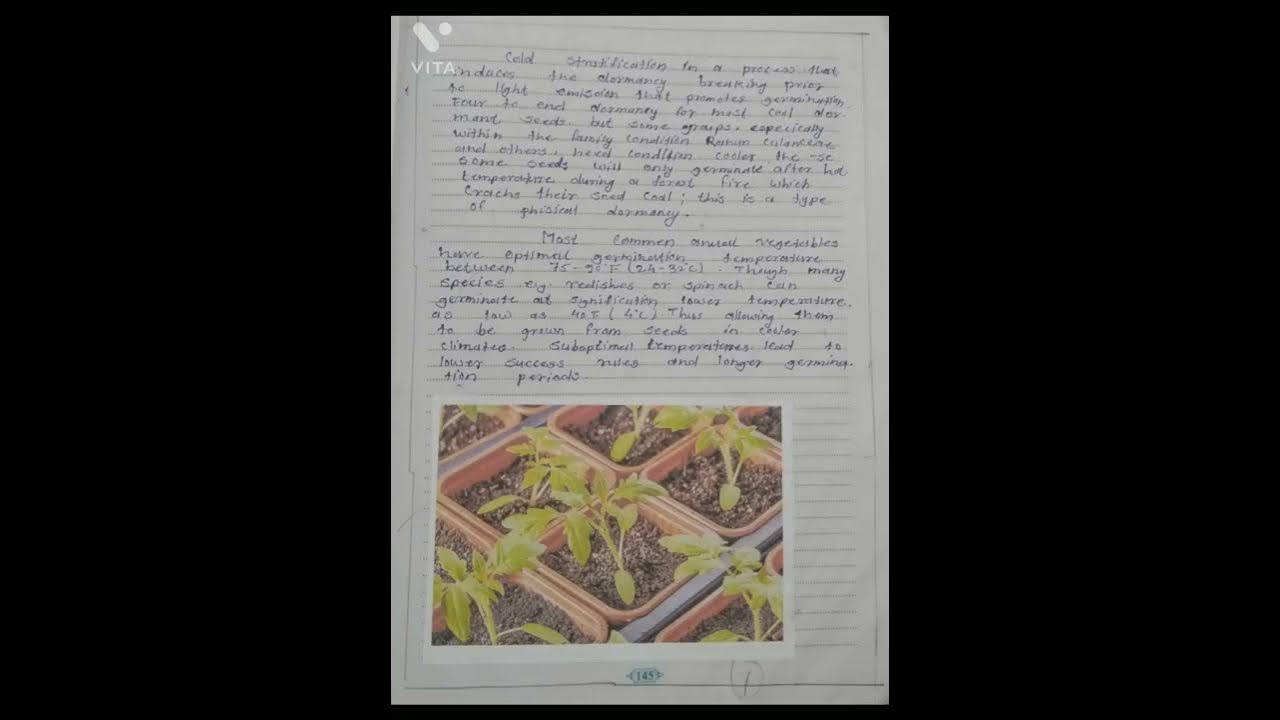 VITA
Cold stratification in a process that
induces the dormancy breaking prior
to light emission that promotes germination.
Four to end dormancy for most cool dor-
mant seeds. but some groups, especically
within the family condition Ranun culanceae
and others, need condition cooler the -se
Some seeds will only germinate after hot
temperature during a forest fire which
Cracks their seed coal; this is a type
of phisical dormancy.
Most Commen anual vegetables
have optimal germination temperature
between 75-90°F (24-32°C). Though many
species e.g. redishes or spinach can
germinate at signification lower temperature.
as low as 40°F (4°C). Thus allowing them
to be grown from seeds in cooler
climates. Suboptimal temperatures lead to
lower success rules and longer germina-
tion periods.
145
1